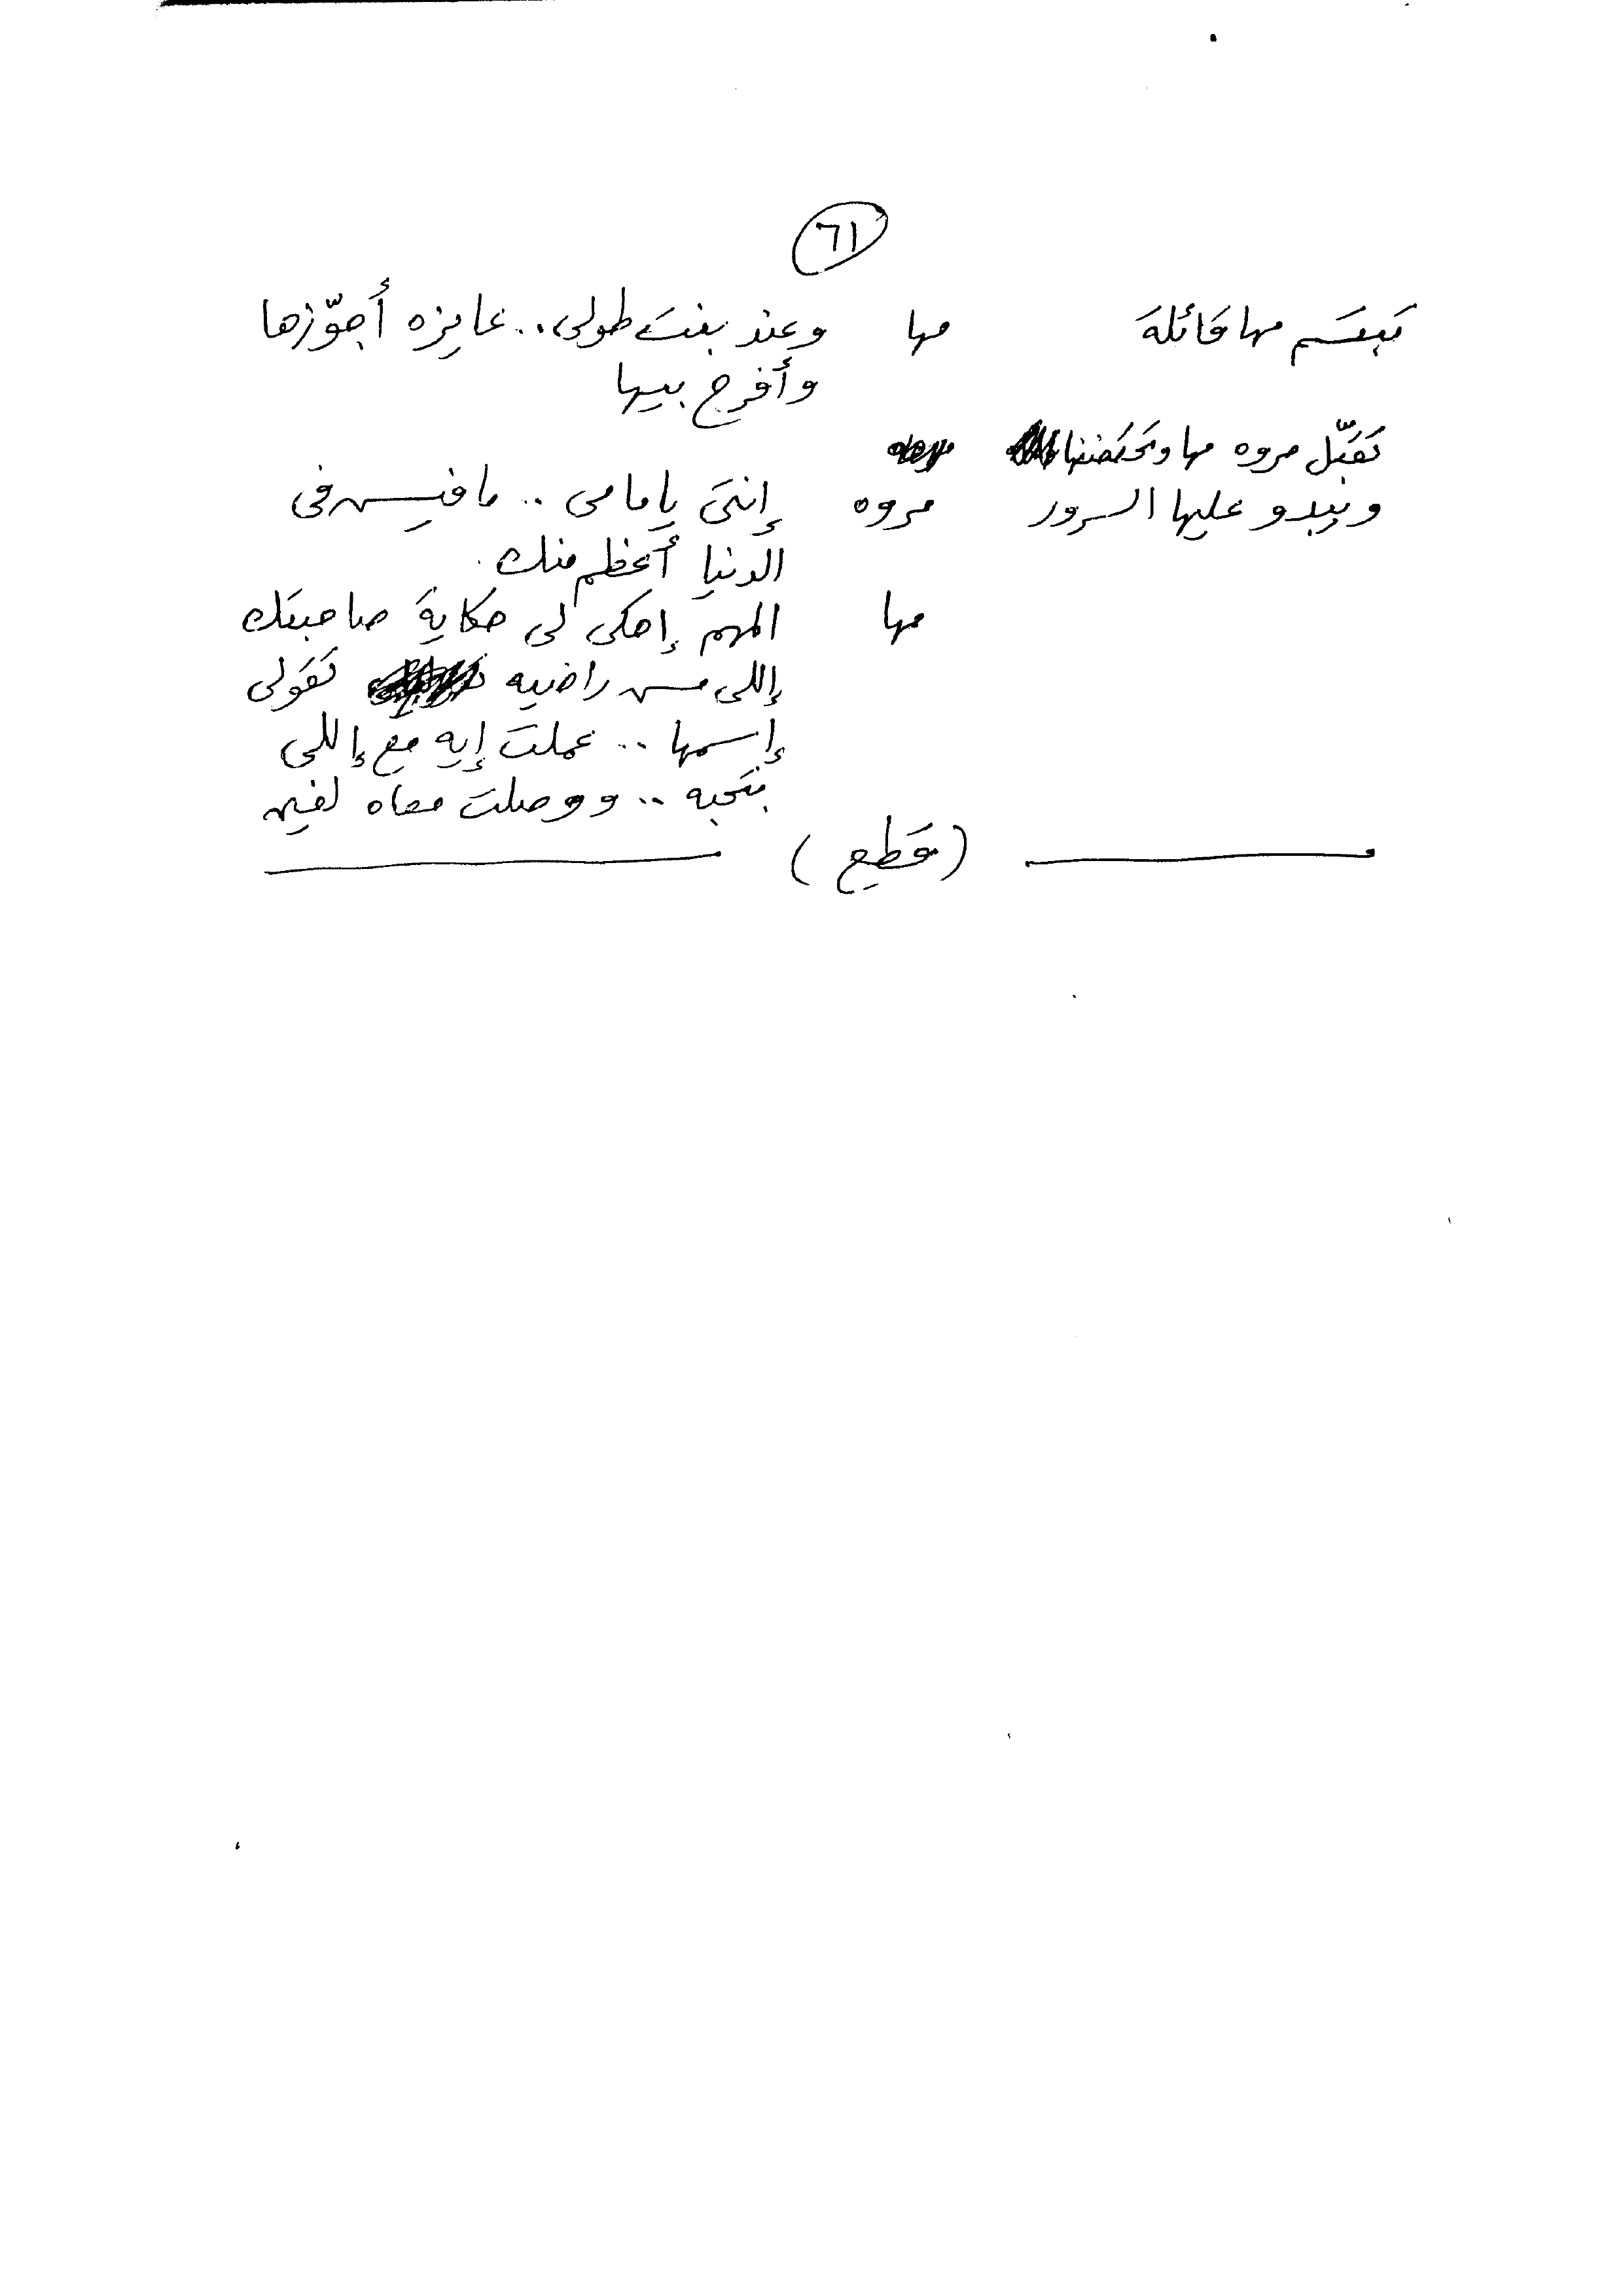 ٦١
تبتسم مها قائلة مها وعند بنت طولى .. عايزه أجوّزها
وأفرح بيها
تقبّل مروه مها وتحتضنها
ويبدو عليها السرور مروه إنتى يا مامى .. مافيش فى
الدنيا أعظم منك .
مها المهم إحكى لى حكاية صاحبتك
إللى مش راضيه تقولى
إسمها .. عملت إيه مع إللى
بتحبه .. ووصلت معاه لفين
(قطع)